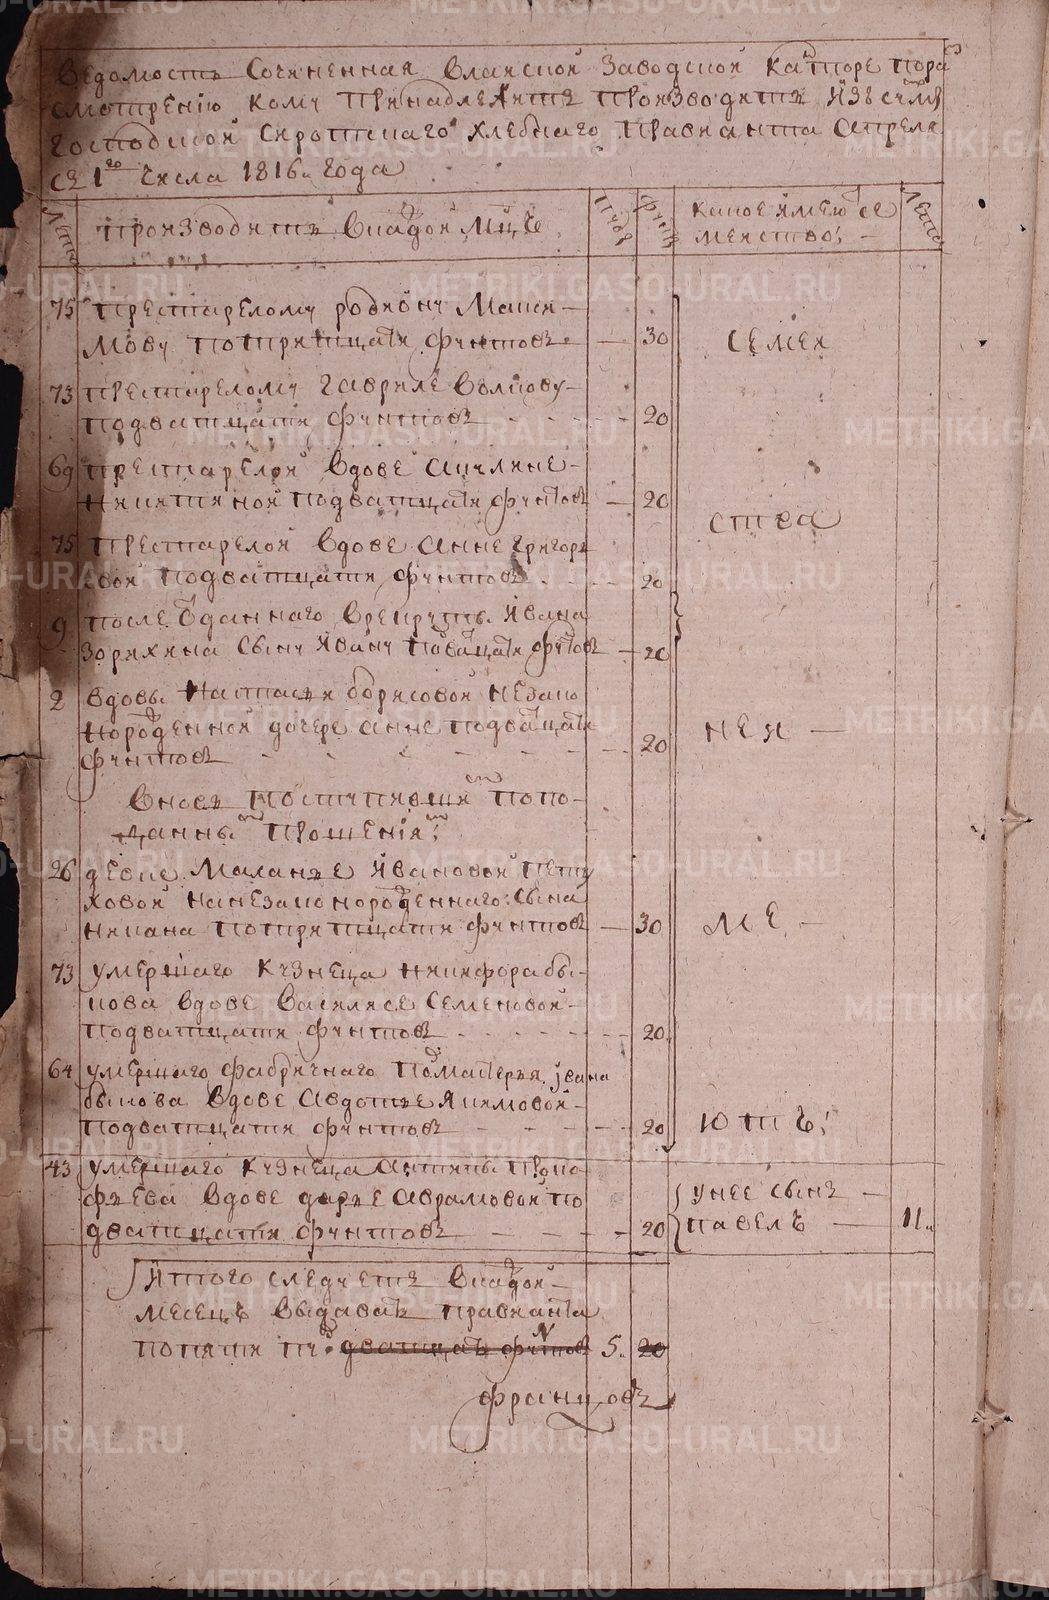 Ведомость Сочиненная вланской Заводской каⷩ҇торе пораⷥ
смотрению кому принадлежитъ производить изъ суммы
господской сиротскаго хлебнаго правианта апреля
съ 1го числа 1816. года
Лета
производить вкаждой Мцъ
Пуды
Фунты
какое имеютъ се
менство;
Лета
75 престарелому родиону Макси
мову потритцати фунтовъ 30
73 престарелому Гавриле Волкову
подватцати фунтовъ 20
69 престарелой вдове акулине
Никитиной подватцати фунтовъ 20
75 престарелой вдове Анне Григорь
евой подватцати фунтовъ 20
9 после отданнаго врекруты Ивана
Зорихина сыну Ивану подватцати фунтовъ 20
2 вдовы Настасьи борисовой незако
норожденной дочере анне подватцати
фунтовъ 20
вновь поступившия попо
данны прошения;
26 девке Маланье Ивановой Пету
ховой нанезаконорожденнаго сына
Никана потритцати фунтовъ 30
73 умершаго кузнеца Никифора бы
кова вдове Василисе Семеновой
подватцати фунтовъ 20
64 умершаго фабричнаго подмастерья ивана
быкова вдове Авдотье Якимовой
подватцати фунтовъ 20
43 умершаго кузнеца Антипы Проко
фьева вдове дарье Аврамовой по
дватцати фунтовъ 20
семей
ства
неи
ме
ютъ;
унее сынъ
павелъ 11.
Итого следуетъ вкаждой
месецъ выдавать правианта
попяти пудъ дватцать фунтовъ 5. 20
Францовъ
METRIKI.GASO-URAL.RU